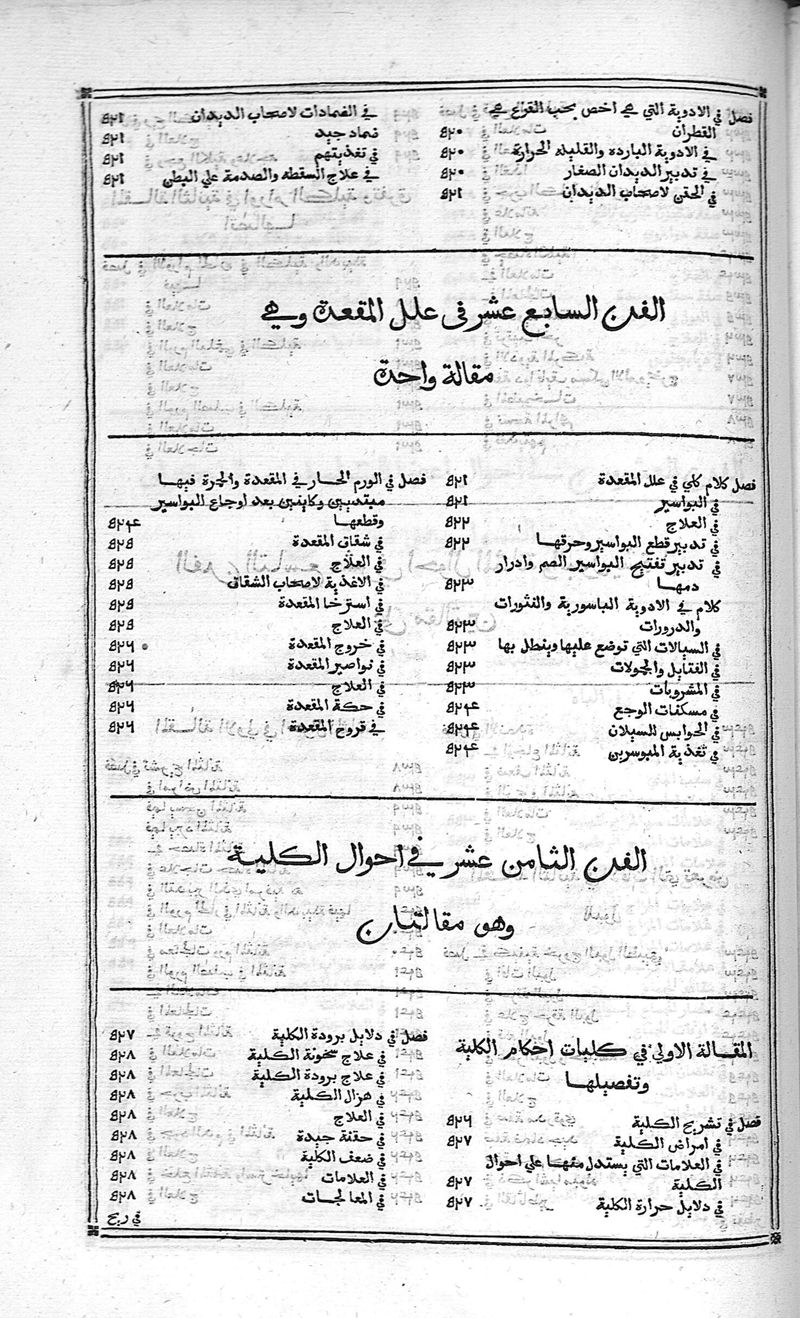 فصل في الادوية التي هي اخص بحب القراع هي
القطران ٥٢٠
في الادوية الباردة والقليلة الحرارة ٥٢٠
في تدبير الديدان الصغار ٥٢٠
في الحقن لاصحاب الديدان ٥٢١
في الضمادات لاصحاب الديدان ٥٢١
ضماد جيد ٥٢١
في تغذيتهم ٥٢١
في علاج السقطه والصدمة علي البطن ٥٢١
الفن السابع عشر في علل المقعدة وهي
مقالة واحدة
فصل كلام كلي في علل المقعدة ٥٢١
في البواسير ٥٢١
في العلاج ٥٢٢
في تدبير قطع البواسير وحرقها ٥٢٢
في تدبير تفتيح البواسير الصم وادرار
دمها ٥٢٣
كلام في الادوية الباسورية والفثورات
والدرورات ٥٢٣
في السيالات التي توضع عليها وينطل بها ٥٢٣
في الفتايل والحمولات ٥٢٣
في المشروبات ٥٢٣
في مسكنات الوجع ٥٢٤
في الحوابس للسيلان ٥٢٤
في تغذية المبوسرين ٥٢٤
فصل في الورم الحار في المقعدة والحمرة فيها
مبتديين وكاينين بعد اوجاع البواسير
وقطعها ٥٢٤
في شقاق المقعدة ٥٢٥
في العلاج ٥٢٥
في الاغذية لاصحاب الشقاق ٥٢٥
في استرخا المقعدة ٥٢٥
في العلاج ٥٢٥
في خروج المقعدة ٥٢٦
في نواصير المقعدة ٥٢٦
في العلاج ٥٢٦
في حكة المقعدة ٥٢٦
في قروح المقعدة ٥٢٦
الفن الثامن عشر في احوال الكلية
وهو مقالتان
المقالة الاولي في كليات احكام الكلية
وتفصيلها
فصل في تشريح الكلية ٥٢٦
في امراض الكلية ٥٢٧
في العلامات التي يستدل منها علي احوال
الكلية ٥٢٧
في دلايل حرارة الكلية ٥٢٧
فصل في دلايل برودة الكلية ٥٢٧
في علاج سخونة الكلية ٥٢٨
في علاج برودة الكلية ٥٢٨
في هزال الكلية ٥٢٨
في العلاج ٥٢٨
في حقنة جيدة ٥٢٨
في ضعف الكلية ٥٢٨
في العلامات ٥٢٨
في المعالجات ٥٢٨
في ريح